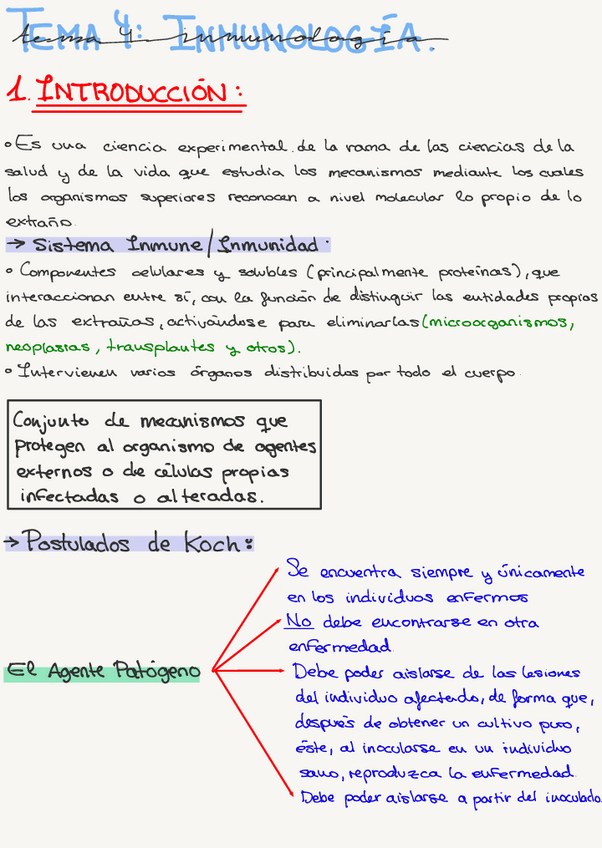 TEMA 4: INMUNOLOGÍA.
tema 4: inmunología
1. INTRODUCCIÓN:
• Es una ciencia experimental de la rama de las ciencias de la
salud y de la vida que estudia los mecanismos mediante los cuales
los organismos superiores reconocen a nivel molecular lo propio de lo
extraño.
→ Sistema Inmune/Inmunidad.
• Componentes celulares y solubles (principalmente proteínas), que
interaccionan entre sí, con la función de distinguir las entidades propias
de las extrañas, activándose para eliminarlas (microorganismos,
neoplasias, transplantes y otros).
• Intervienen varios órganos distribuidos por todo el cuerpo.
Conjunto de mecanismos que
protegen al organismo de agentes
externos o de células propias
infectadas o alteradas.
→ Postulados de Koch:
El Agente Patógeno
Se encuentra siempre y únicamente
en los individuos enfermos
No debe encontrarse en otra
enfermedad
Debe poder aislarse de las lesiones
del individuo afectado, de forma que,
después de obtener un cultivo puro,
éste, al inocularse en un individuo
sano, reproduzca la enfermedad.
Debe poder aislarse a partir del inoculado